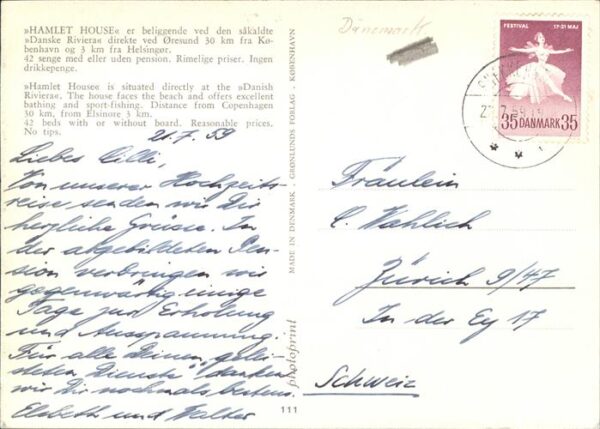 »HAMLET HOUSE« er beliggende ved den såkaldte
»Danske Riviera« direkte ved Øresund 30 km fra Kø-
benhavn og 3 km fra Helsingør.
42 senge med eller uden pension. Rimelige priser. Ingen
drikkepenge.
»Hamlet House« is situated directly at the »Danish
Riviera«. The house faces the beach and offers excellent
bathing and sport-fishing. Distance from Copenhagen
30 km, from Elsinore 3 km.
42 beds with or without board. Reasonable prices.
No tips.
21.7.59
Liebes Cilli,
Von unserer Hochzeits-
reise senden wir Dir
herzliche Grüsse. In
der abgebildeten Pen-
sion verbringen wir
gegenwärtig einige
Tage zur Erholung
und Ausspannung.
Für alle Deinen gelei-
steten Dienste danken
wir Dir nochmals bestens.
Elsbeth und Walter
MADE IN DENMARK . GRØNLUNDS FORLAG . KØBENHAVN
photoprint
111
Dänemark
FESTIVAL 17-31 MAJ
35 DANMARK 35
Fräulein
C. Wahlich
Zürich 9/47
In der Ey 17
Schweiz